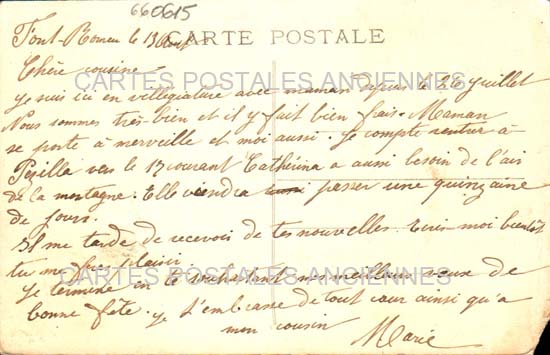 660615
CARTE POSTALE
Font-Romeu le 13 Aout
Chère cousine
CARTES POSTALES ANCIENNES
Je suis ici en villégiature avec maman depuis le 26 juillet
Nous sommes très bien et il y fait bien frais. Maman
se porte à merveille et moi aussi. Je compte rentrer à
Pézilla vers le 17 courant Cathérina a aussi besoin de l'air
de la montagne. Elle viendra passer une quinzaine
de jours.
Il me tarde de recevoir de tes nouvelles. Ecris-moi bientôt
tu me feras plaisir
CARTES POSTALES ANCIENNES
Je termine en te souhaitant mes meilleurs vœux de
bonne fête. Je t'embrasse de tout cœur ainsi qu'a
mon cousin
Marie